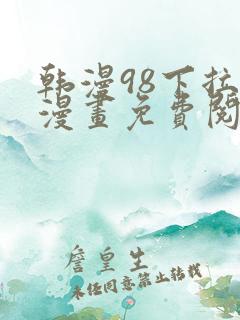 韩漫98下拉
漫畫免費閱
詹皇生
未经同意禁止转载